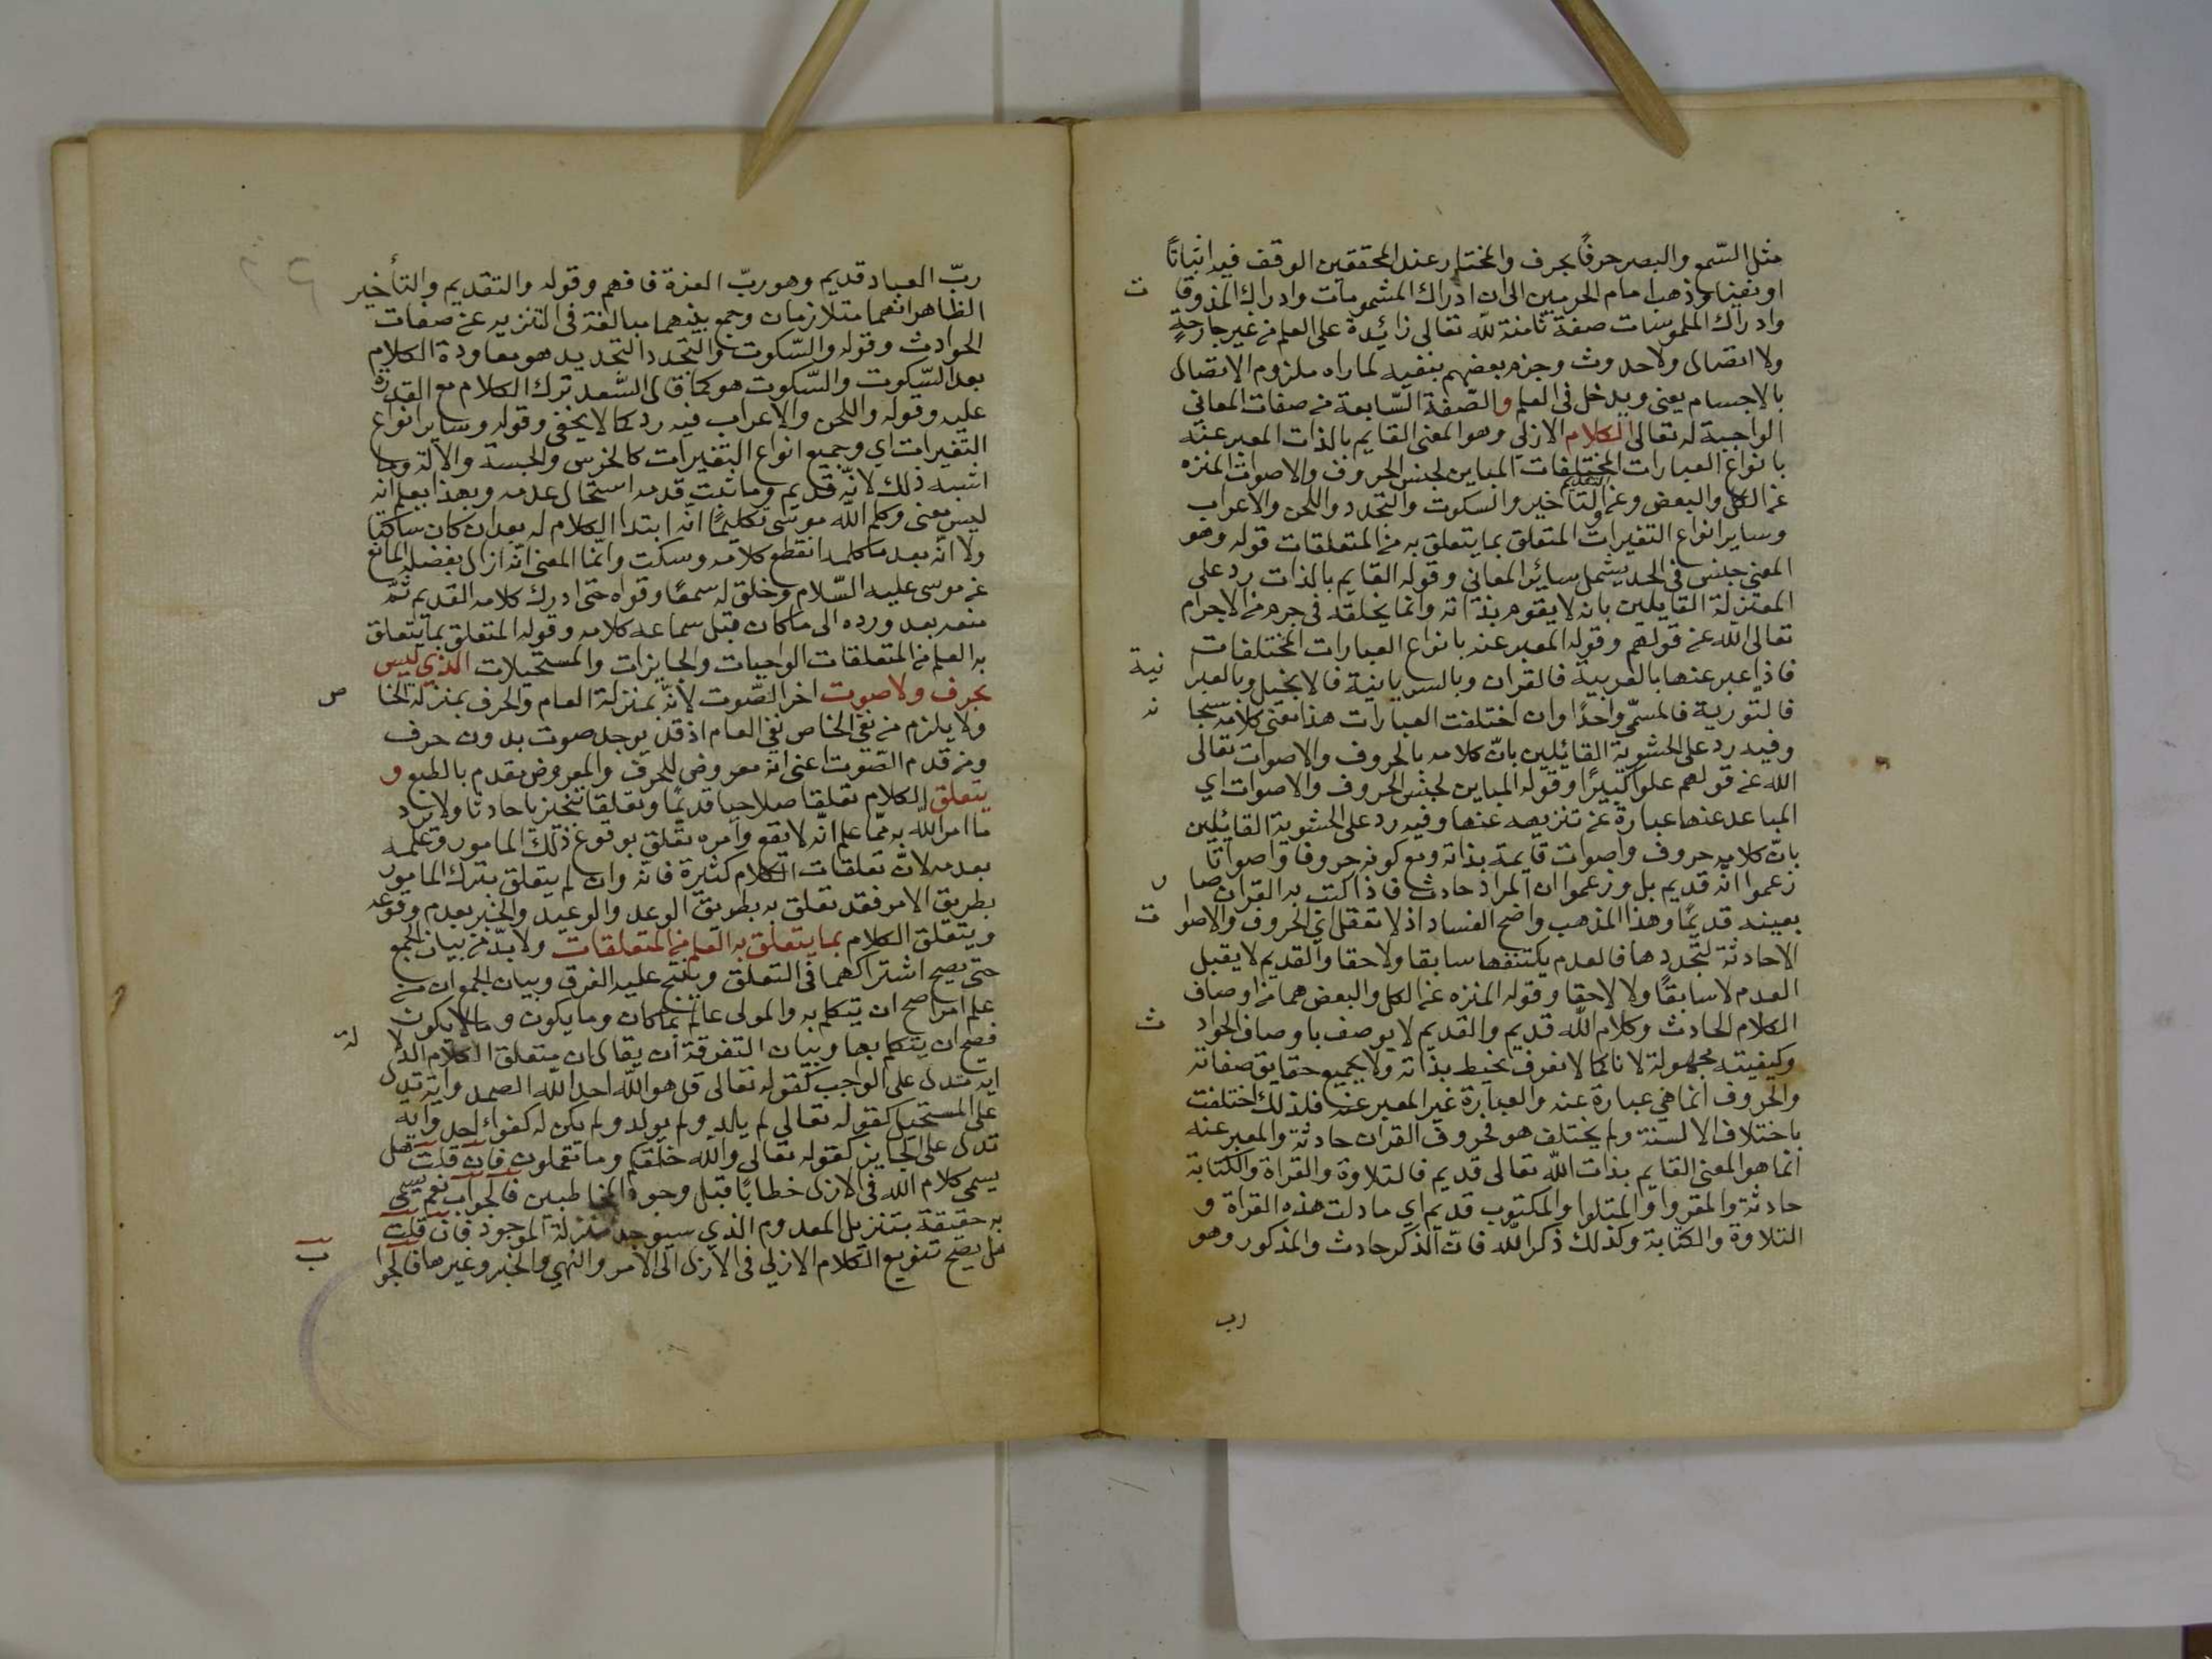 مثل السّمع والبصر حرفًا بحرف والمختار عند المحققين الوقف فيه اثباتًا
او نفيا وذهب امام الحرمين الى ان ادراك المشمومات وادراك المذوقا ت
وادراك الملموسات صفة ثامنة للّه تعالى زائدة على العلم من غير جارحةٍ
ولا اتصال ولا حدوث وجزم بعضهم بنفيه لما راه ملزوم الاتصال
بالاجسام يعنى ويدخل فى العلم والصّفة السّابعة من صفات المعاني
الواجبة له تعالى الكلام الازلي وهو المعنى القايم بالذات المعبر عنه
بانواع العبارات المختلفات المباين لجنس الحروف والاصوات المنزه
عن الكل والبعض وعن التقديم والتأخير والسكوت والتجدد واللحن والاعراب
وساير انواع التغيرات المتعلق بما يتعلق به من المتعلقات قوله وهو
المعني جنس فى الحد يشمل سائر المعاني وقوله القايم بالذات رد على
المعتزلة القايلين بانه لا يقوم بذاته وانما يخلقه فى جرم من الاجرام
تعالى اللّه عن قولهم وقوله المعبر عنه بانواع العبارات المختلفات
فاذا عبر عنها بالعربية فالقران وبالسريانية فالانجيل وبالعبر نية
فالتورية فالمسمّى واحدًا وان اختلفت العبارات هذا معنى كلامه سبحا نه
وفيه رد على الحشوية القائلين بانّ كلامه بالحروف والاصوات تعالى
الله عن قولهم علوا كبيرًا وقوله المباين لجنس الحروف والاصوات اي
المباعد عنها عبارة عن تنزيهه عنها وفيه رد على الحشوية القائلين
بانّ كلامه حروف واصوات قايمة بذاته ومع كونه حروفا واصواتًا
زعموا انّه قديم بل وزعموا ان المراد حادث فاذا كتب به القران صا ر
بعينه قديمًا وهذا المذهب واضح الفساد اذ لا تعقل اي الحروف والاصو ات
الاحادثة لتجددها فالعدم يكتنفها سابقا ولاحقا والقديم لا يقبل
العدم لا سابقًا ولا لاحقا وقوله المنزه عن الكل والبعض هما من اوصاف
الكلام الحادث وكلام اللّه قديم والقديم لا يوصف باوصاف الحواد ث
وكيفيته مجهولة لاناكما لا نعرف نحيط بذاته ولا بجميع حقايق صفاته
والحروف انما هي عبارة عنه والعبارة غير المعبر عنه فلذلك اختلفت
باختلاف الالسنة ولم يختلف هو فحروف القران حادثة والمعبر عنه
انما هو المعنى القايم بذات اللّه تعالى قديم فالتلاوة والقراة والكتابة
حادثة والمقروا والمتلوا والمكتوب قديم اي ما دلت هذه القراة و
التلاوة والكتابة وكذلك ذكر اللّه فانّ الذكر حادث والمذكور وهو
رب
ربّ العباد قديم وهو ربّ العزة فافهم وقوله والتقديم والتأخير
الظاهر انهما متلازمان وجمع بينهما مبالغة فى التنزيه عن صفات
الحوادث وقوله والسّكوت والتجدد التجديد هو معاودة الكلام
بعد السّكوت والسّكوت هو كما قال السّعد ترك الكلام مع القدرة
عليه وقوله واللحن والاعراب فيه رد كما لا يخفى وقوله وساير انواع
التغيرات اي وجميع انواع التغيرات كالخرس والحبسة والالة وما
اشبه ذلك لانّه قديم وما ثبت قدمه استحال عدمه وبهذا يعلم انه
ليس معنى وكلم اللّه موسى تكليمًا انّه ابتدا الكلام له بعد ان كان ساكتا
ولا انّه بعد ما كلمه انقطع كلامه وسكت وانّما المعنى انّه ازال بفضله المانع
عن موسى عليه السّلام وخلق له سمعًا وقواه حتى ادرك كلامه القديم ثمّ
منعه بعد ورده الى ما كان قبل سماعه كلامه وقوله المتعلق بما يتعلق
به العلم من المتعلقات الواجبات والجايزات والمستحيلات الذي ليس
بحرف ولا صوت اخر الصّوت لانّه بمنزلة العام والحرف بمنزلة الخا ص
ولا يلزم من نفي الخاص نفي العام اذ قد يوجد صوت بدون حرف
ومن قدم الصّوت اعنى انه معروض للحرف والمعروض مقدم بالطبع و
يتعلق الكلام تعلقا صلاحيا قديمًا وتعلقا تنجيزيا حادثا ولا يرد
ما امر اللّه به ممّا علم انّه لا يقع وامره تعلق بوقوع ذلك المامور وعلمه
بعدمه لانّ تعلقات الكلام كثيرة فانّه وان لم يتعلق بترك المامور
بطريق الامر فقد تعلق به بطريق الوعد والوعيد والخبر بعدم وقوعه
ويتعلق الكلام بما يتعلق به العلم من المتعلقات ولا بدّ من بيان الجمع
حتى يصح اشتراكهما فى التعلق وينتج عليه الفرق وبيان الجمع ان من
علم امرا صح ان يتكلم به والمولى عالم بما كان وما يكون وما لا يكون
فصح ان يتكلم بها وبيان التفرقة ان يقال ان متعلق الكلام الدلا لة
ايه تدل على الواجب كقوله تعالى قل هو اللّه احد اللّه الصمد واية تدل
على المستحيل كقوله تعالى لم يلد ولم يولد ولم يكن له كفوا احد واية
تدل على الجايز كقوله تعالى واللّه خلقكم وما تعملون فان قلت هل
يسمى كلام اللّه فى الازل خطابًا قبل وجود المخاطبين فالجواب نعم يسمى
به حقيقة بتنزيل المعدوم الذي سيوجد منزلة الموجود فان قلت
هل يصح تنويع الكلام الازلي فى الازل الى الامر والنهي والخبر وغيرها فالجوا ب